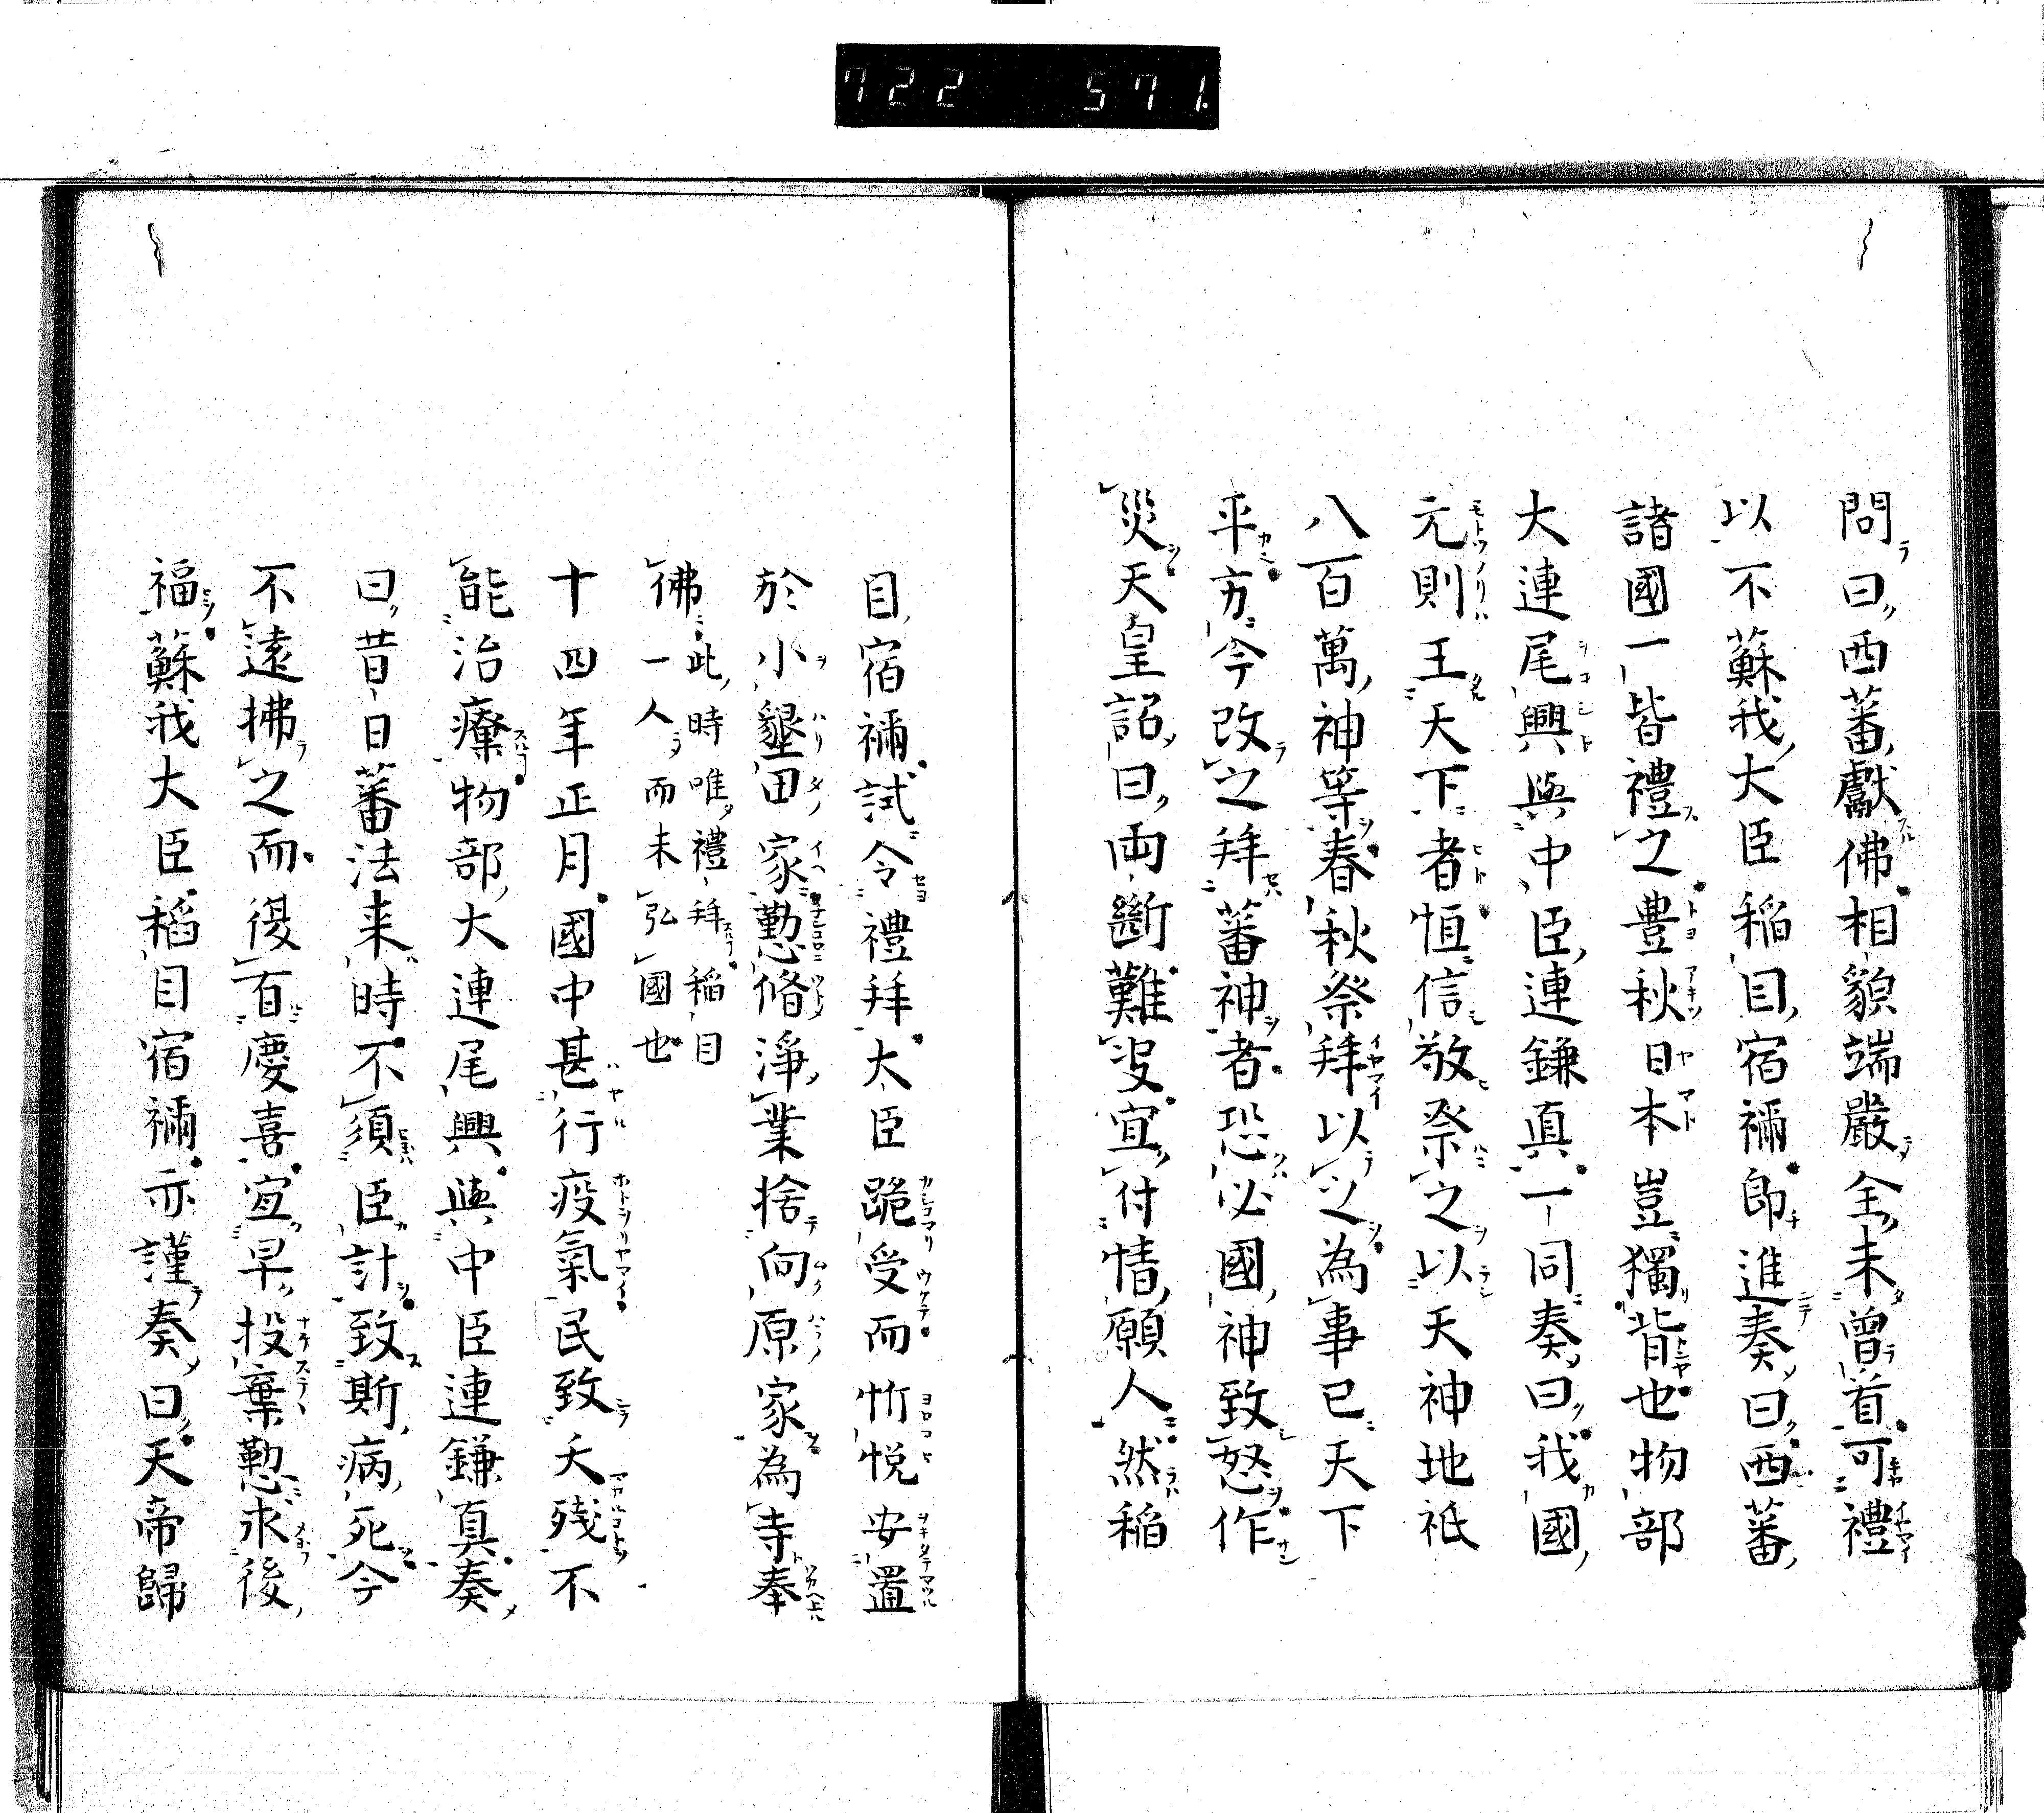 722 571.
問曰西蕃獻佛相貌端嚴全未曾首可禮
以不蘇我大臣稲目宿禰即進奏曰西蕃
諸國一皆禮之豊秋日本豈獨背也物部
大連尾輿與中臣連鎌真一同奏曰我國
元則王天下者恒信敬祭之以天神地祇
八百萬神等春秋祭拜以之為事已天下
平方今改之拜蕃神者恐必國神致怒作
災天皇詔曰両斷難定宜付情願人然稲
目宿禰試令禮拜大臣跪受而忻悦安置
於小墾田家懃脩淨業捨向原家為寺奉
佛此時唯禮拜稲目
一人而未弘國也
十四年正月國中甚行疫氣民致夭残不
能治療物部大連尾輿與中臣連鎌真奏
曰昔日蕃法来時不須臣計致斯病死今
不遠拂之而復有慶喜宜早投棄懃求後
福蘇我大臣稲目宿禰亦謹奏曰天帝歸